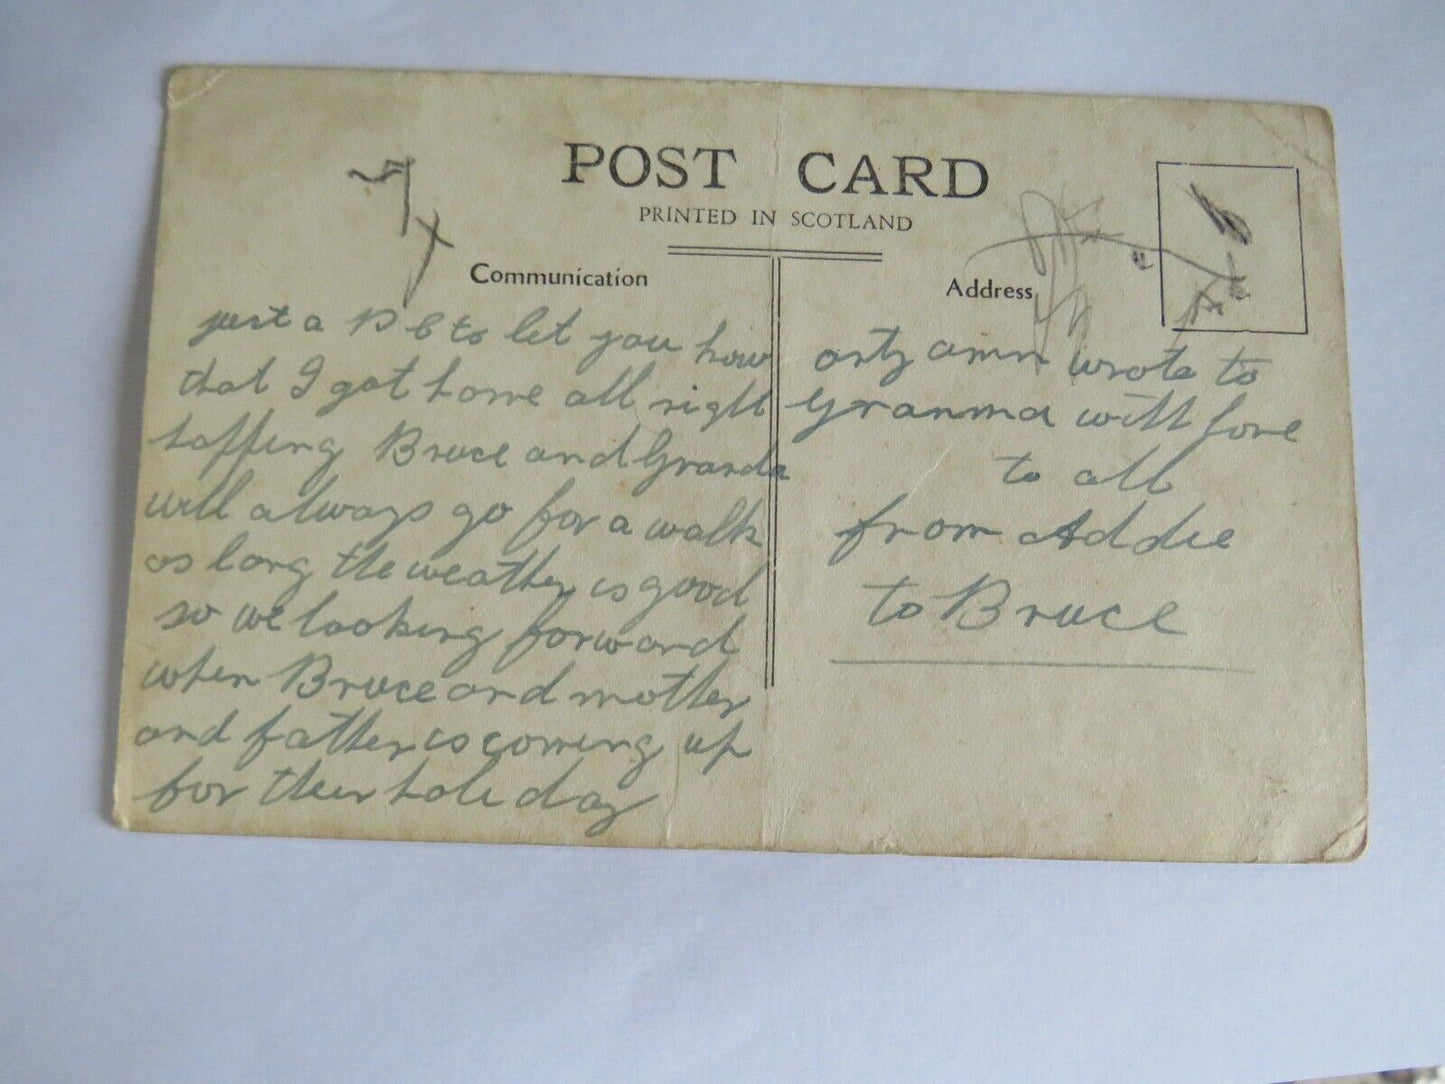 POST CARD
PRINTED IN SCOTLAND
Communication
just a P C to let you how
that I got home all right
hoffing Bruce and Granda
will always go for a walk
as long the weather is good
so we looking forward
when Bruce and mother
and father is coming up
for their holiday
Address
wrote to
Granma with love
to all
from Addie
to Bruce